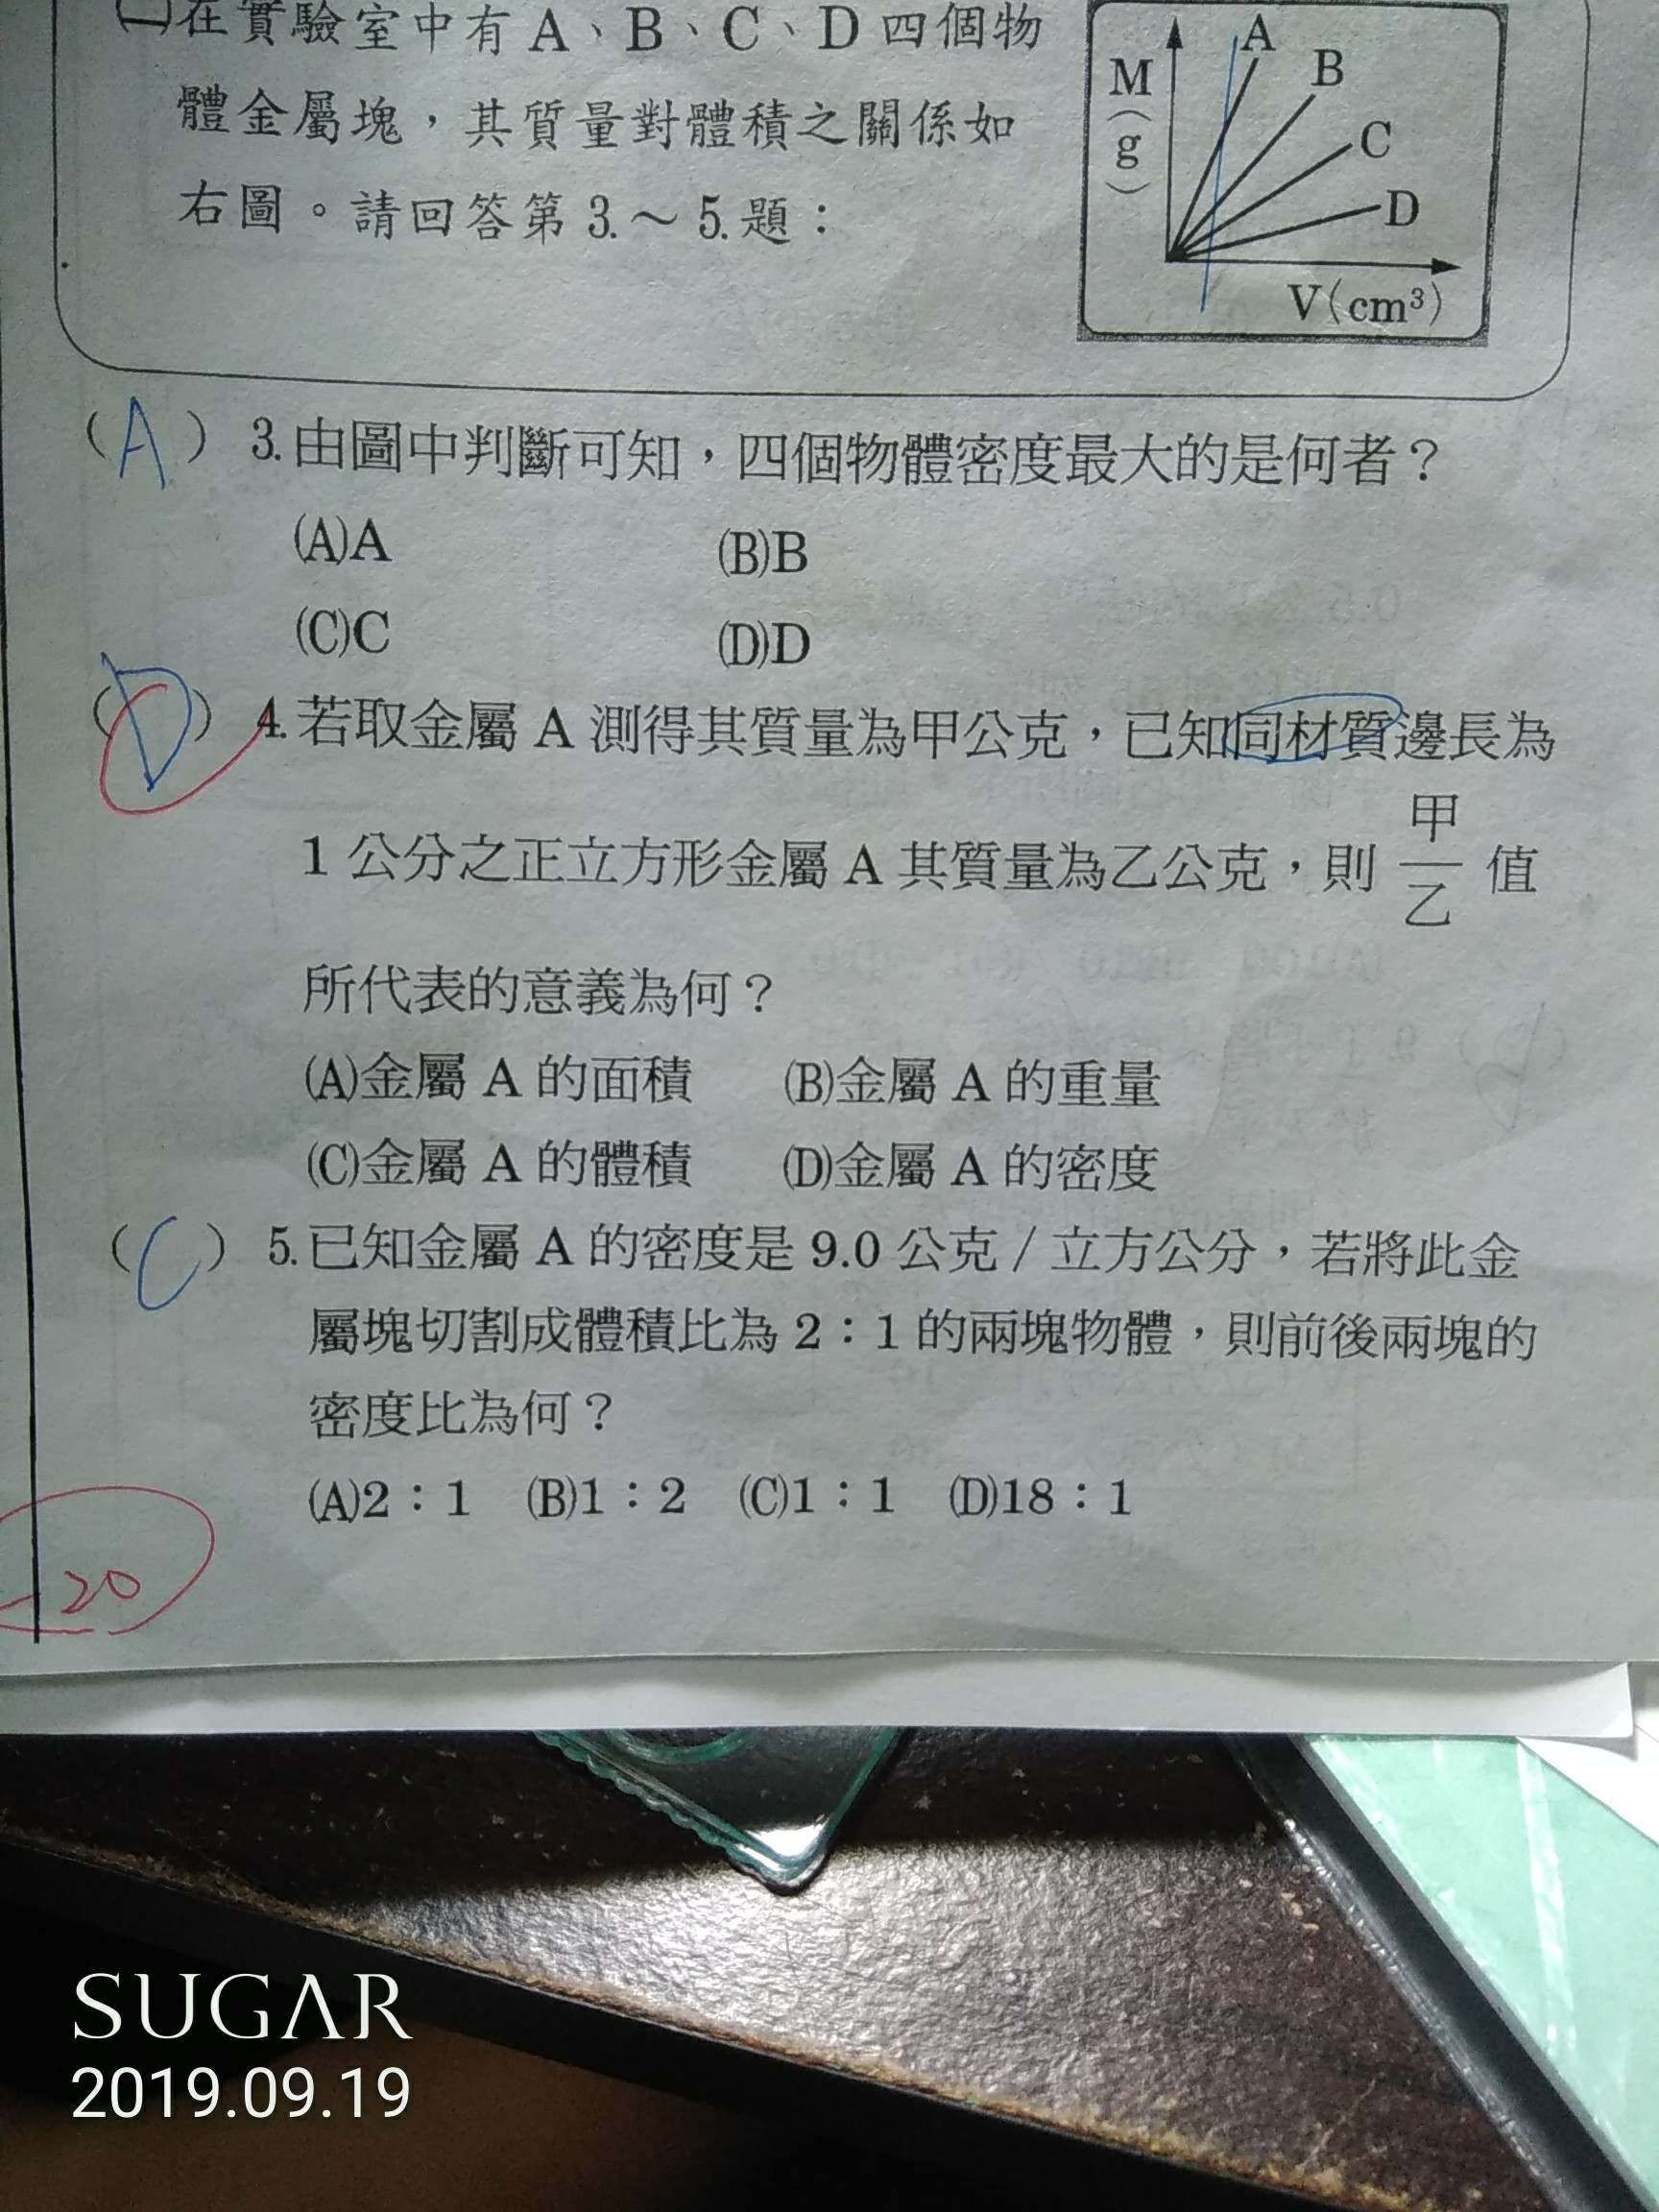 (一)在實驗室中有 A、B、C、D 四個物
體金屬塊，其質量對體積之關係如
右圖。請回答第 3.～ 5.題：
M
(g)
A
B
C
D
V(cm³)
(A) 3.由圖中判斷可知，四個物體密度最大的是何者？
(A)A (B)B
(C)C (D)D
(D) 4.若取金屬 A 測得其質量為甲公克，已知同材質邊長為
1 公分之正立方形金屬 A 其質量為乙公克，則 甲/乙 值
所代表的意義為何？
(A)金屬 A 的面積 (B)金屬 A 的重量
(C)金屬 A 的體積 (D)金屬 A 的密度
(C) 5.已知金屬 A 的密度是 9.0 公克 / 立方公分，若將此金
屬塊切割成體積比為 2：1 的兩塊物體，則前後兩塊的
密度比為何？
(A)2：1 (B)1：2 (C)1：1 (D)18：1
-20
SUGAR
2019.09.19